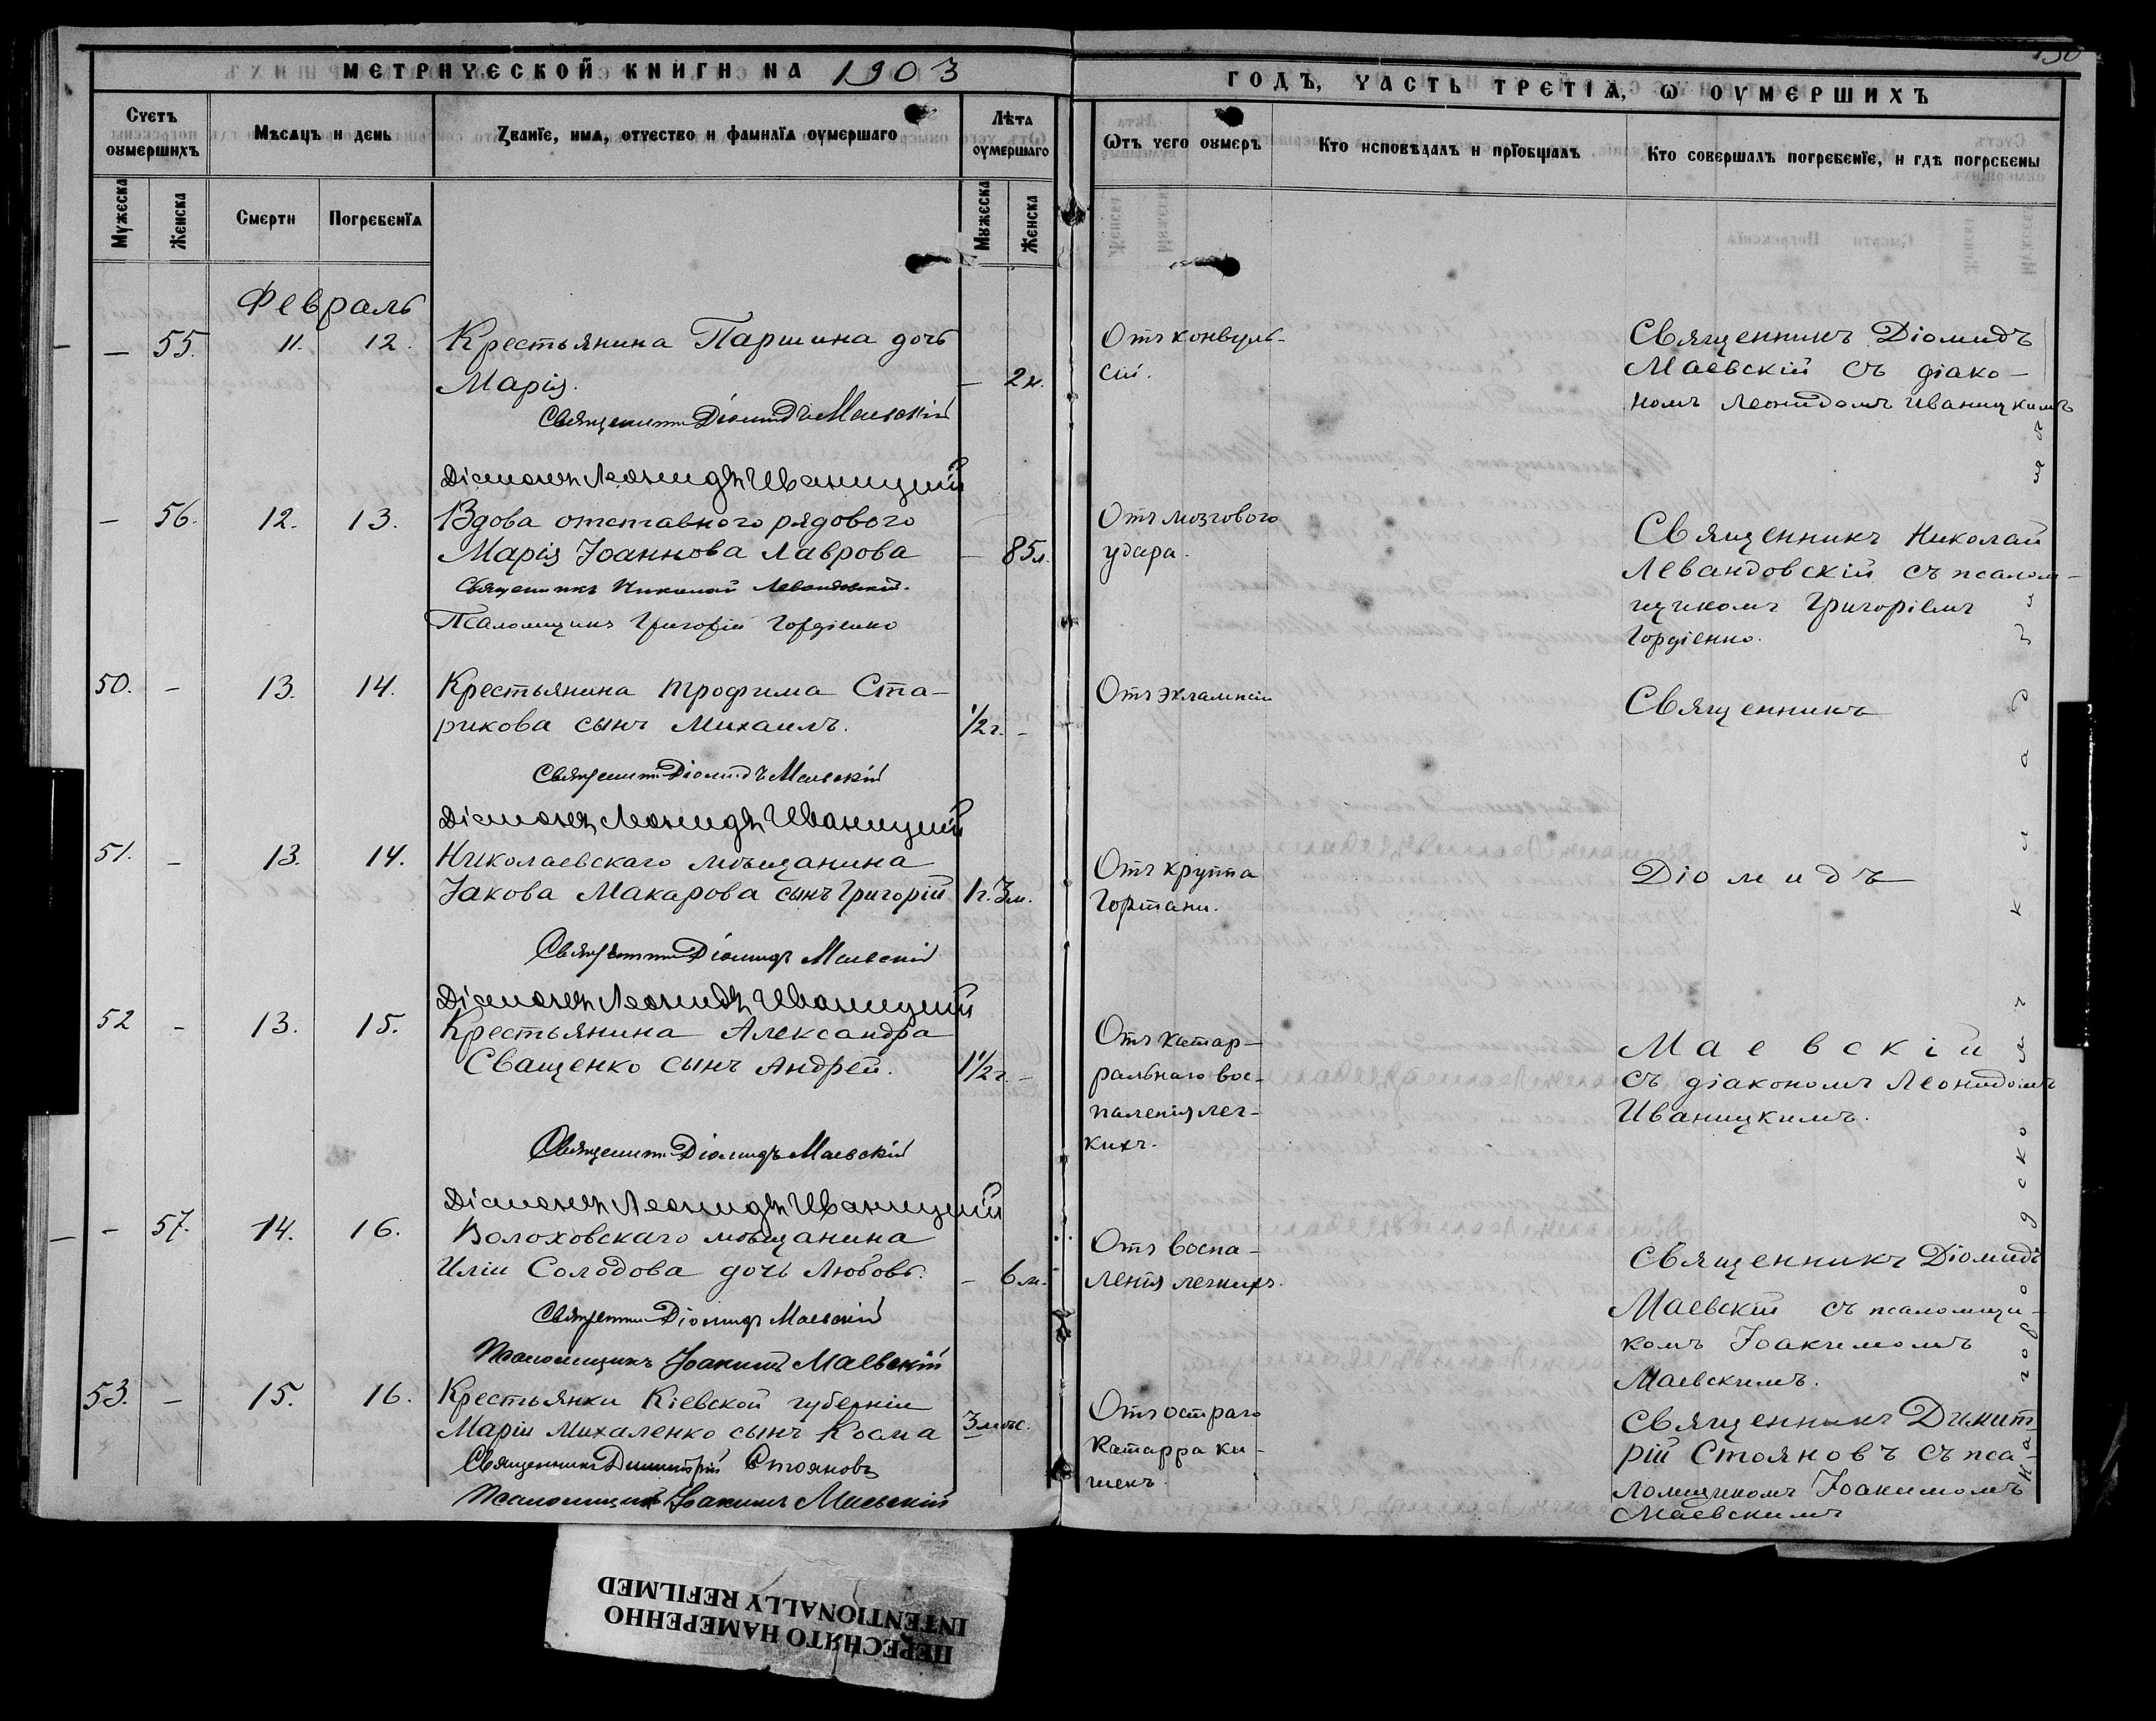 МЕТРИЧЕСКОЙ КНИГИ НА 1903
ГОДЪ, ЧАСТЬ ТРЕТІѦ, Ѡ ОУМЕРШИХЪ
Счетъ оумершихъ
Мѣсѧцъ и день
Званїе, имѧ, отчество и фамилїѧ оумершаго
Лѣта оумершаго
Ѿтъ чего оумеръ
Кто исповѣдалъ и прїобщалъ
Кто совершалъ погребенїе, и гдѣ погребены
Мужеска
Женска
Смерти
Погребенїѧ
Мужеска
Женска
Февраль
— 55. 11. 12. Крестьянина Паршина дочь
Марія. — 2н.
Священникъ Діомидъ Маевскій
Діаконъ Леонидъ Иваницкій
Отъ конвуль-
сій.
Священникъ Діомидъ
Маевскій съ діако-
номъ Леонидомъ Иваницкимъ
— 56. 12. 13. Вдова отставного рядового
Марія Іоаннова Лаврова — 85л.
Священникъ Николай Левандовскій.
Псаломщикъ Григорій Гордіенко
Отъ мозгового
удара.
Священникъ Николай
Левандовскій съ псалом-
щикомъ Григоріемъ
Гордіенко.
50. — 13. 14. Крестьянина Трофима Ста-
рикова сынъ Михаилъ. 1/2г. —
Священникъ Діомидъ Маевскій
Діаконъ Леонидъ Иваницкій
Отъ эклампсіи
Священникъ
51. — 13. 14. Николаевскаго мѣщанина
Іакова Макарова сынъ Григорій 1г. 3м.
Священникъ Діомидъ Маевскій
Діаконъ Леонидъ Иваницкій
Отъ крупа
Гортани.
Діомидъ
52 — 13. 15. Крестьянина Александра
Сващенко сынъ Андрей. 1 1/2г. —
Священникъ Діомидъ Маевскій
Діаконъ Леонидъ Иваницкій
Отъ катар-
ральнаго вос-
паленія лег-
кихъ.
Маевскій
съ діакономъ Леонидомъ
Иваницкимъ.
— 57. 14. 16. Волоховскаго мѣщанина
Иліи Солодова дочь Любовь. — 6м.
Священникъ Діомидъ Маевскій
Псаломщикъ Іоакимъ Маевскій
Отъ воспа-
ленія легкихъ.
Священникъ Діомидъ
Маевскій съ псаломщи-
комъ Іоакимомъ
Маевскимъ.
53. — 15. 16. Крестьянки Кіевской губерніи
Маріи Михаленко сынъ Косма 3мѣс.
Священникъ Димитрій Стояновъ
Псаломщикъ Іоакимъ Маевскій
Отъ остраго
Катарра ки-
шекъ.
Священникъ Димит-
рій Стояновъ съ пса-
ломщикомъ Іоакимомъ
Маевскимъ
На городскомъ кладбищѣ
ПЕРЕСНЯТО НАМЕРЕННО
INTENTIONALLY REFILMED